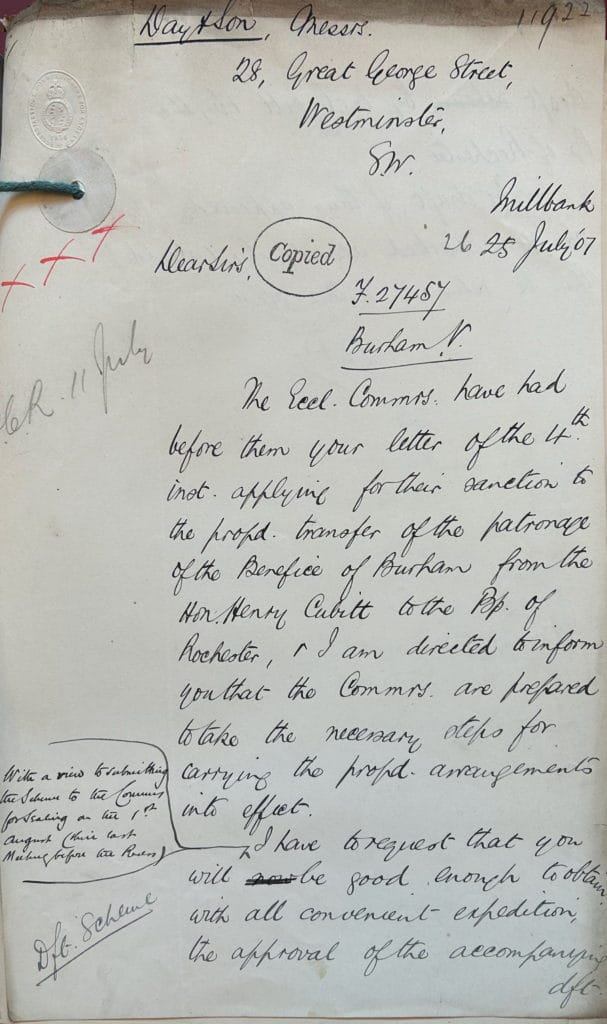 11922
Day & Son, Messrs.
28, Great George Street,
Westminster,
S.W.
Millbank
26 25 July '07
Dear Sirs,
Copied
F. 27457
Burham V.
C.R. 11 July
The Eccl. Commrs. have had
before them your letter of the 4th.
inst. applying for their sanction to
the propd. transfer of the patronage
of the Benefice of Burham from the
Hon. Henry Cubitt to the Bp. of
Rochester, & I am directed to inform
you that the Commrs. are prepared
to take the necessary steps for
carrying the propd. arrangements
into effect.
With a view to submitting
the Scheme to the Commrs
for Sealing on the 1st
August (their last
Meeting before the Recess)
I have to request that you
will now be good enough to obtain,
with all convenient expedition,
the approval of the accompanying
dft.
Dft. Scheme